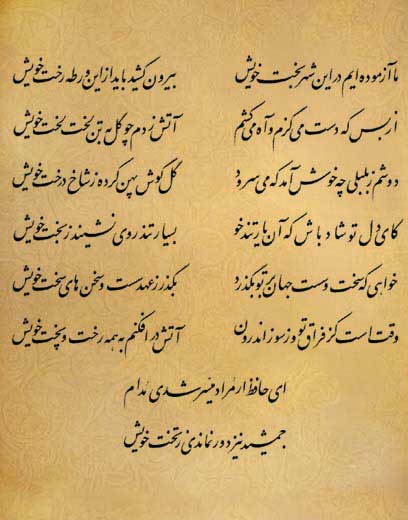 ما آزموده‌ایم در این شهر بخت خویش
بیرون کشید باید از این ورطه رخت خویش
از بس که دست می‌گزم و آه می‌کشم
آتش زدم چو گل به تن لخت لخت خویش
دوشم ز بلبلی چه خوش آمد که می‌سرود
گل گوش پهن کرده ز شاخ درخت خویش
کای دل تو شاد باش که آن یار تندخو
بسیار تندروی نشیند ز بخت خویش
خواهی که سخت و سست جهان بر تو بگذرد
بگذر ز عهد سست و سخن‌های سخت خویش
وقت است کز فراق تو وز سوز اندرون
آتش درافکنم به همه رخت و پخت خویش
ای حافظ ار مراد میسر شدی مدام
جمشید نیز دور نماندی ز تخت خویش